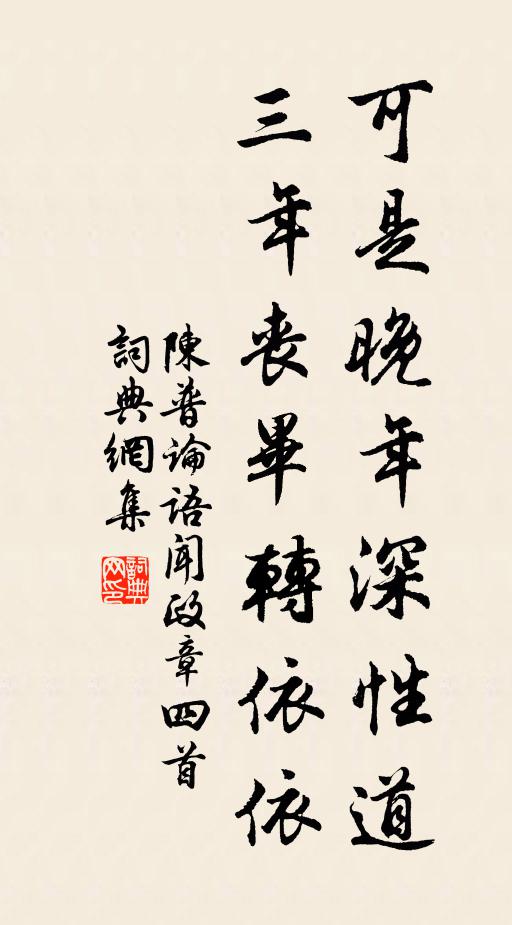 可是晚年深性道
三年喪畢轉依依
陳普論語聞政章四首
詞典網集
詞典网印